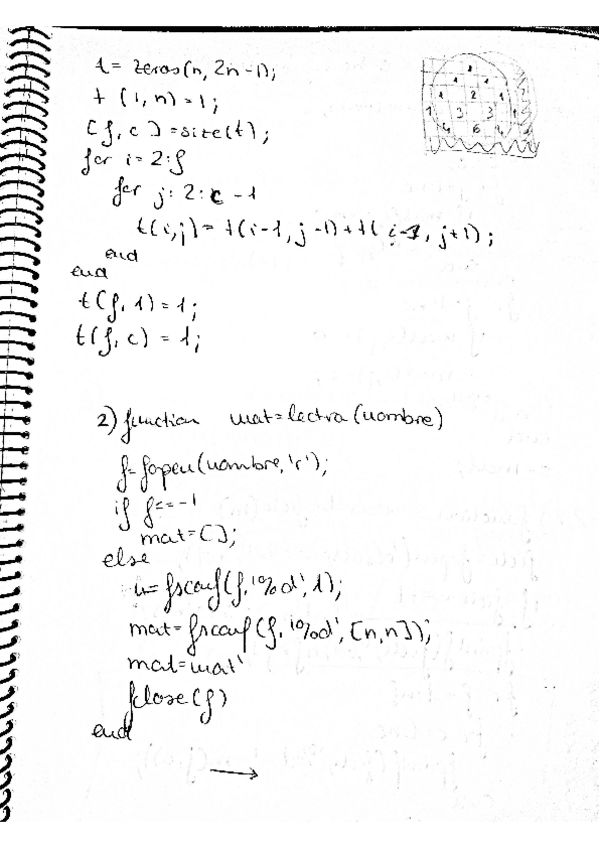 t = zeros(n, 2n-1);
t (1, n) = 1;
[f, c] = size(t);
for i = 2:f
for j: 2: c - 1
t(i,j) = t(i-1, j-1) + t(i-1, j+1);
end
end
t(f, 1) = 1;
t(f, c) = 1;
1 1
1 2 1
1 3 3 1
4 6 4
2) function mat = lectra (nombre)
f = fopen(nombre, 'r');
if f == -1
mat = [];
else
n = fscanf(f, '%d', 1);
mat = fscanf(f, '%d', [n,n]);
mat = mat'
fclose(f)
end